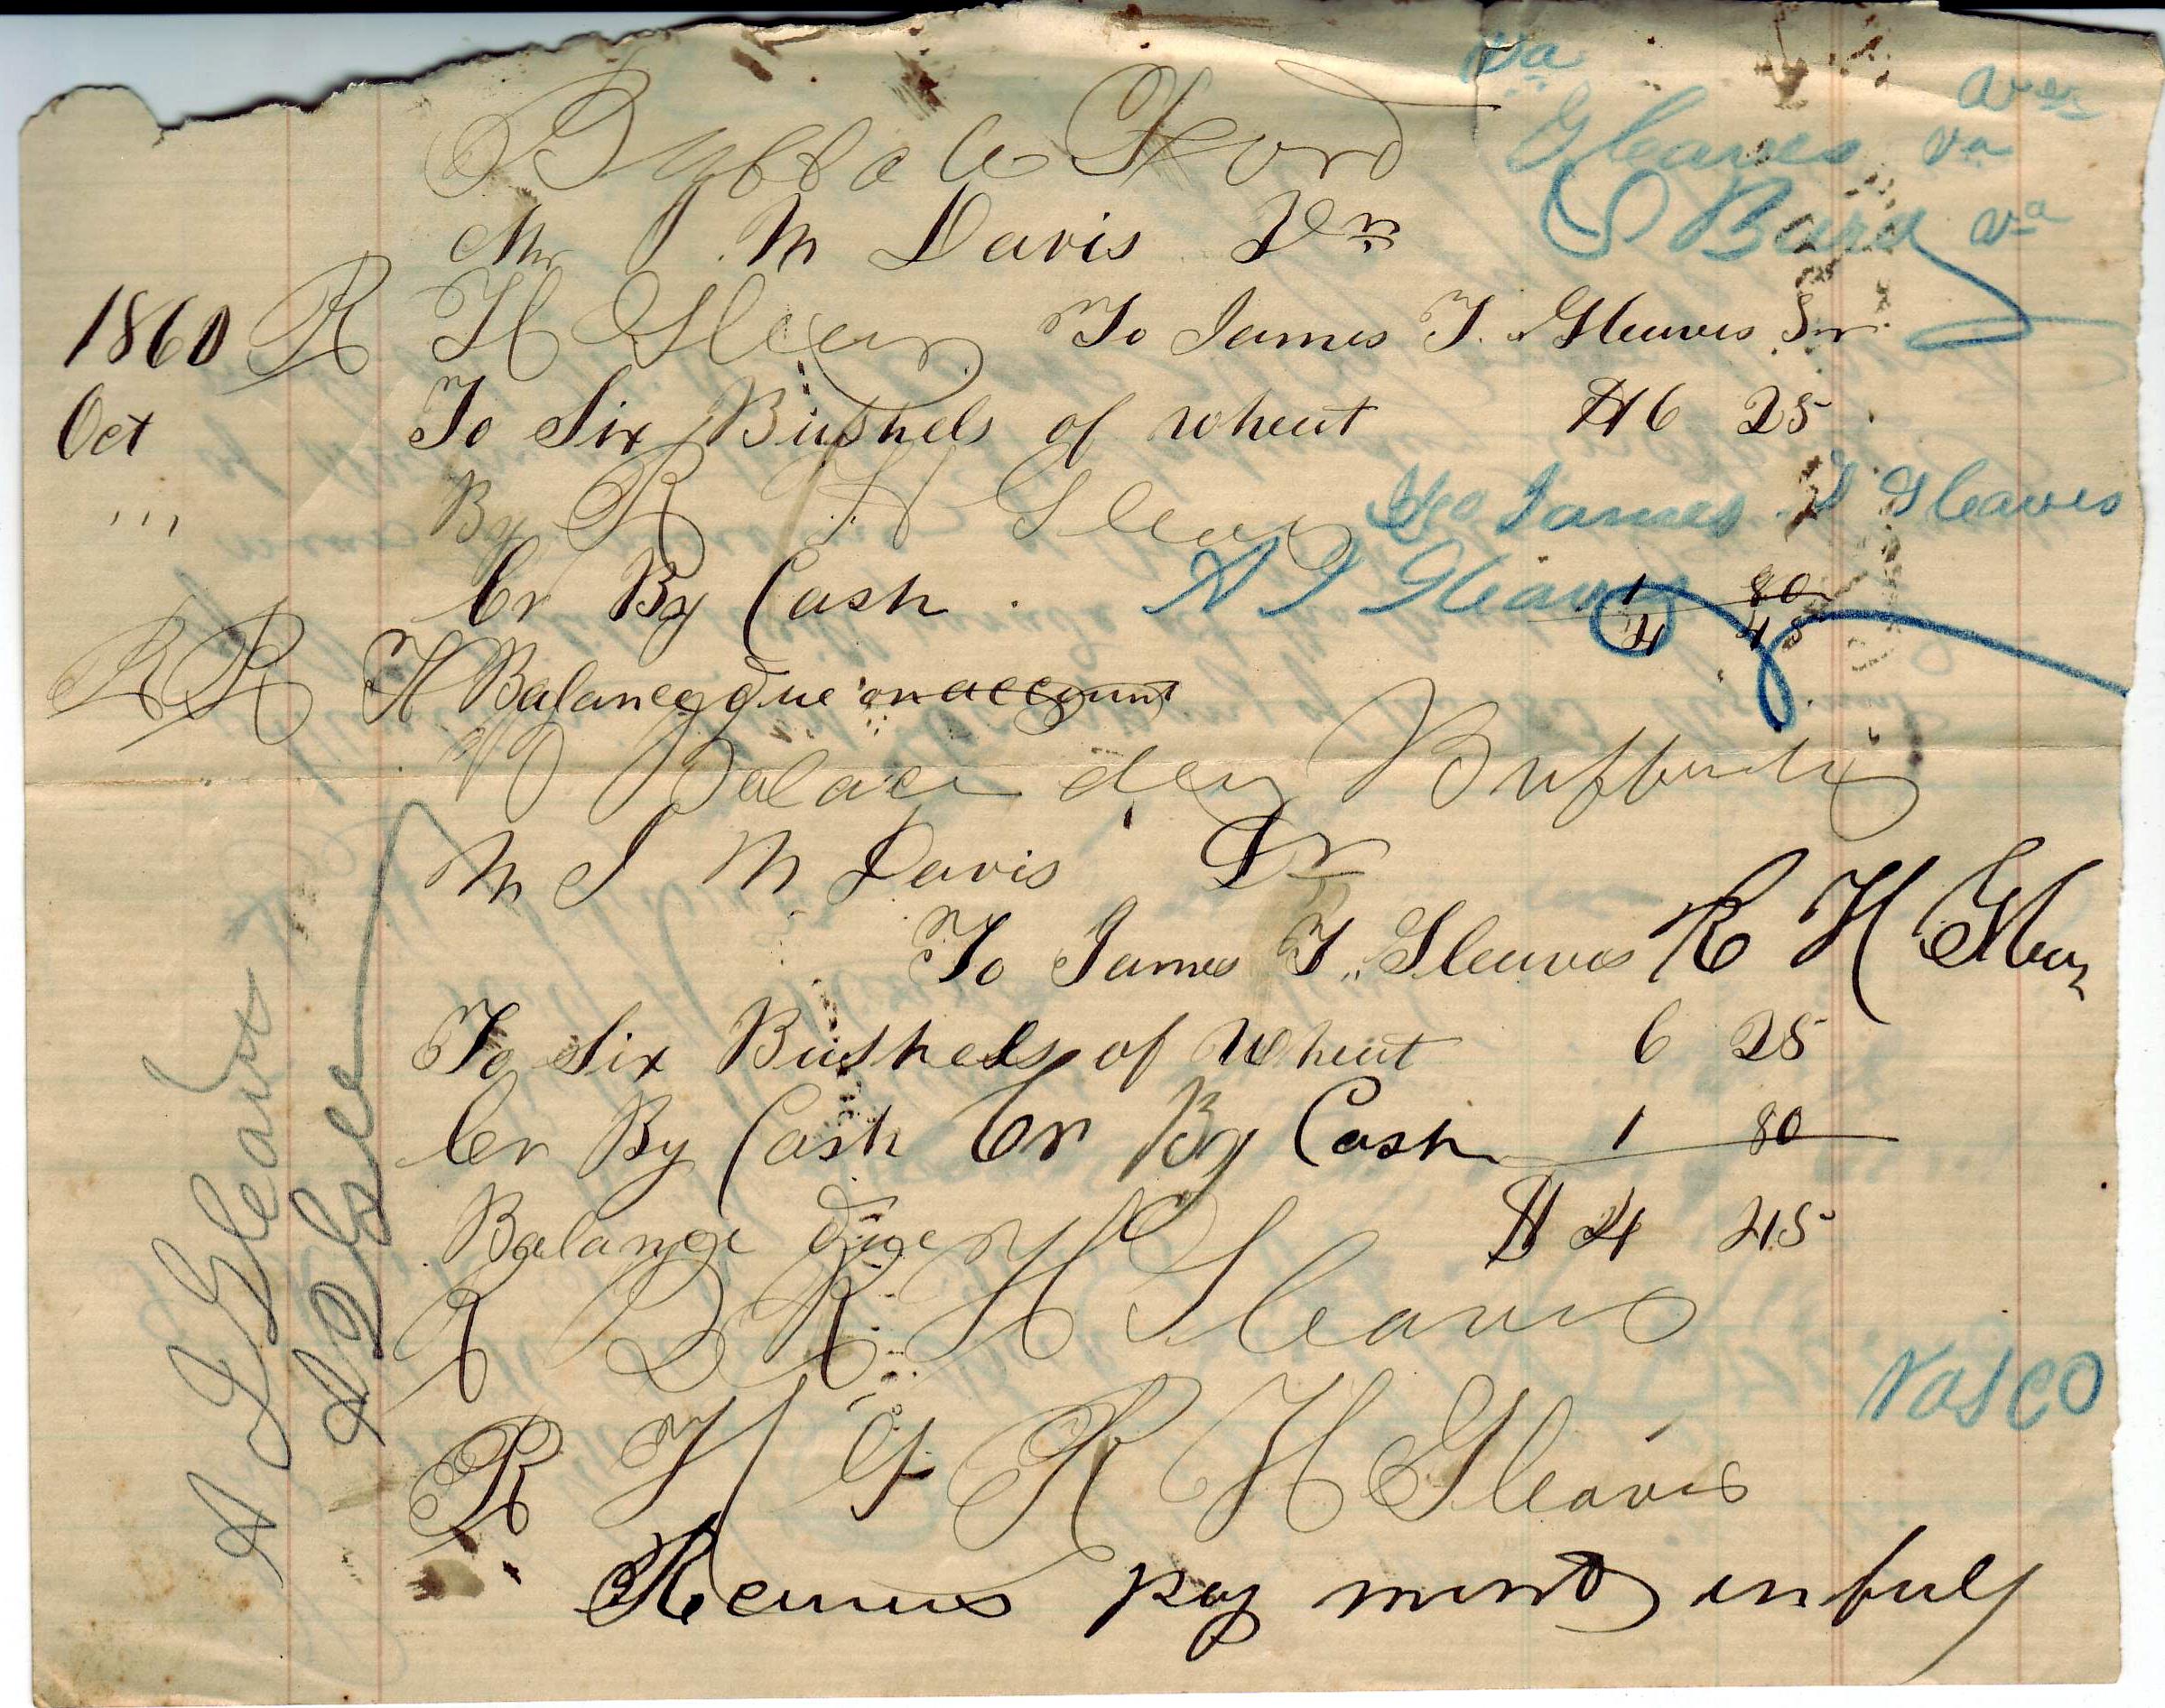 Va
Gleaves Va
S Bard Va
Ford
Mr J. M Davis Dr
1860 R H Glean To James T. Gleaves Dr
Oct To Six Bushels of wheat $6 25
,,, By R H Gleav James T Gleaves
Cr By Cash . A T Gleaves 1 80
4 45
R R H Balance due on account
Balace
M J M Davis Dr
To James T. Gleaves R H Gleav
To Six Bushels of Wheat 6 25
Cr By Cash Cr By Cash 1 80
Balange Due $ 4 45
R R H Gleavis
R H G R H Gleavis
pay ment in full
A T Gleav
Vasco